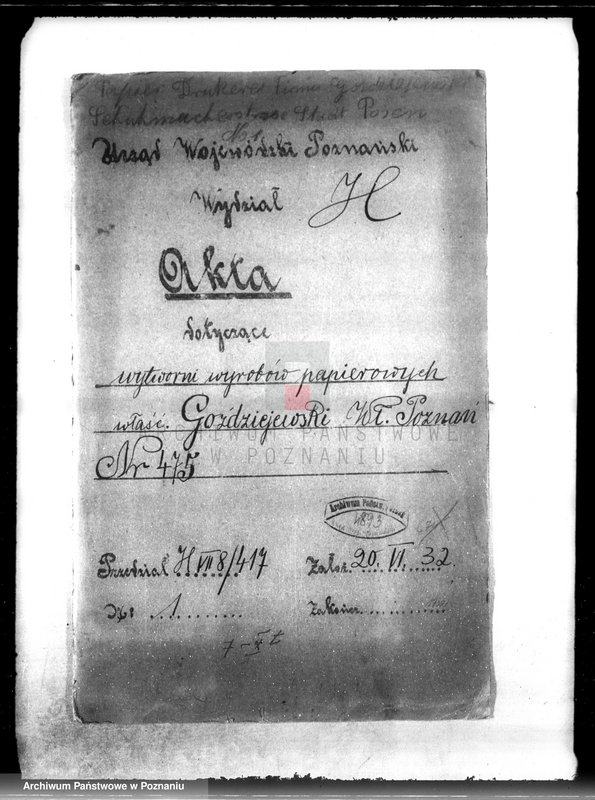 Papier Druckerei Firma Gozdziejewski
Schuhmacherstrasse Stadt Posen
Urząd Wojewódzki Poznański
Wydział H
Akta
dotyczące
wytworni wyrobów papierowych
właść. Goździejewski Wł. Poznań
ARCHIWUM PAŃSTWOWE
W POZNANIU
Nr 475
Archiwum Państw.
4893
Przedział H VII 8/417
Założ. 20. VI. 32.
Nr: 1
Zakończ.
Archiwum Państwowe w Poznaniu